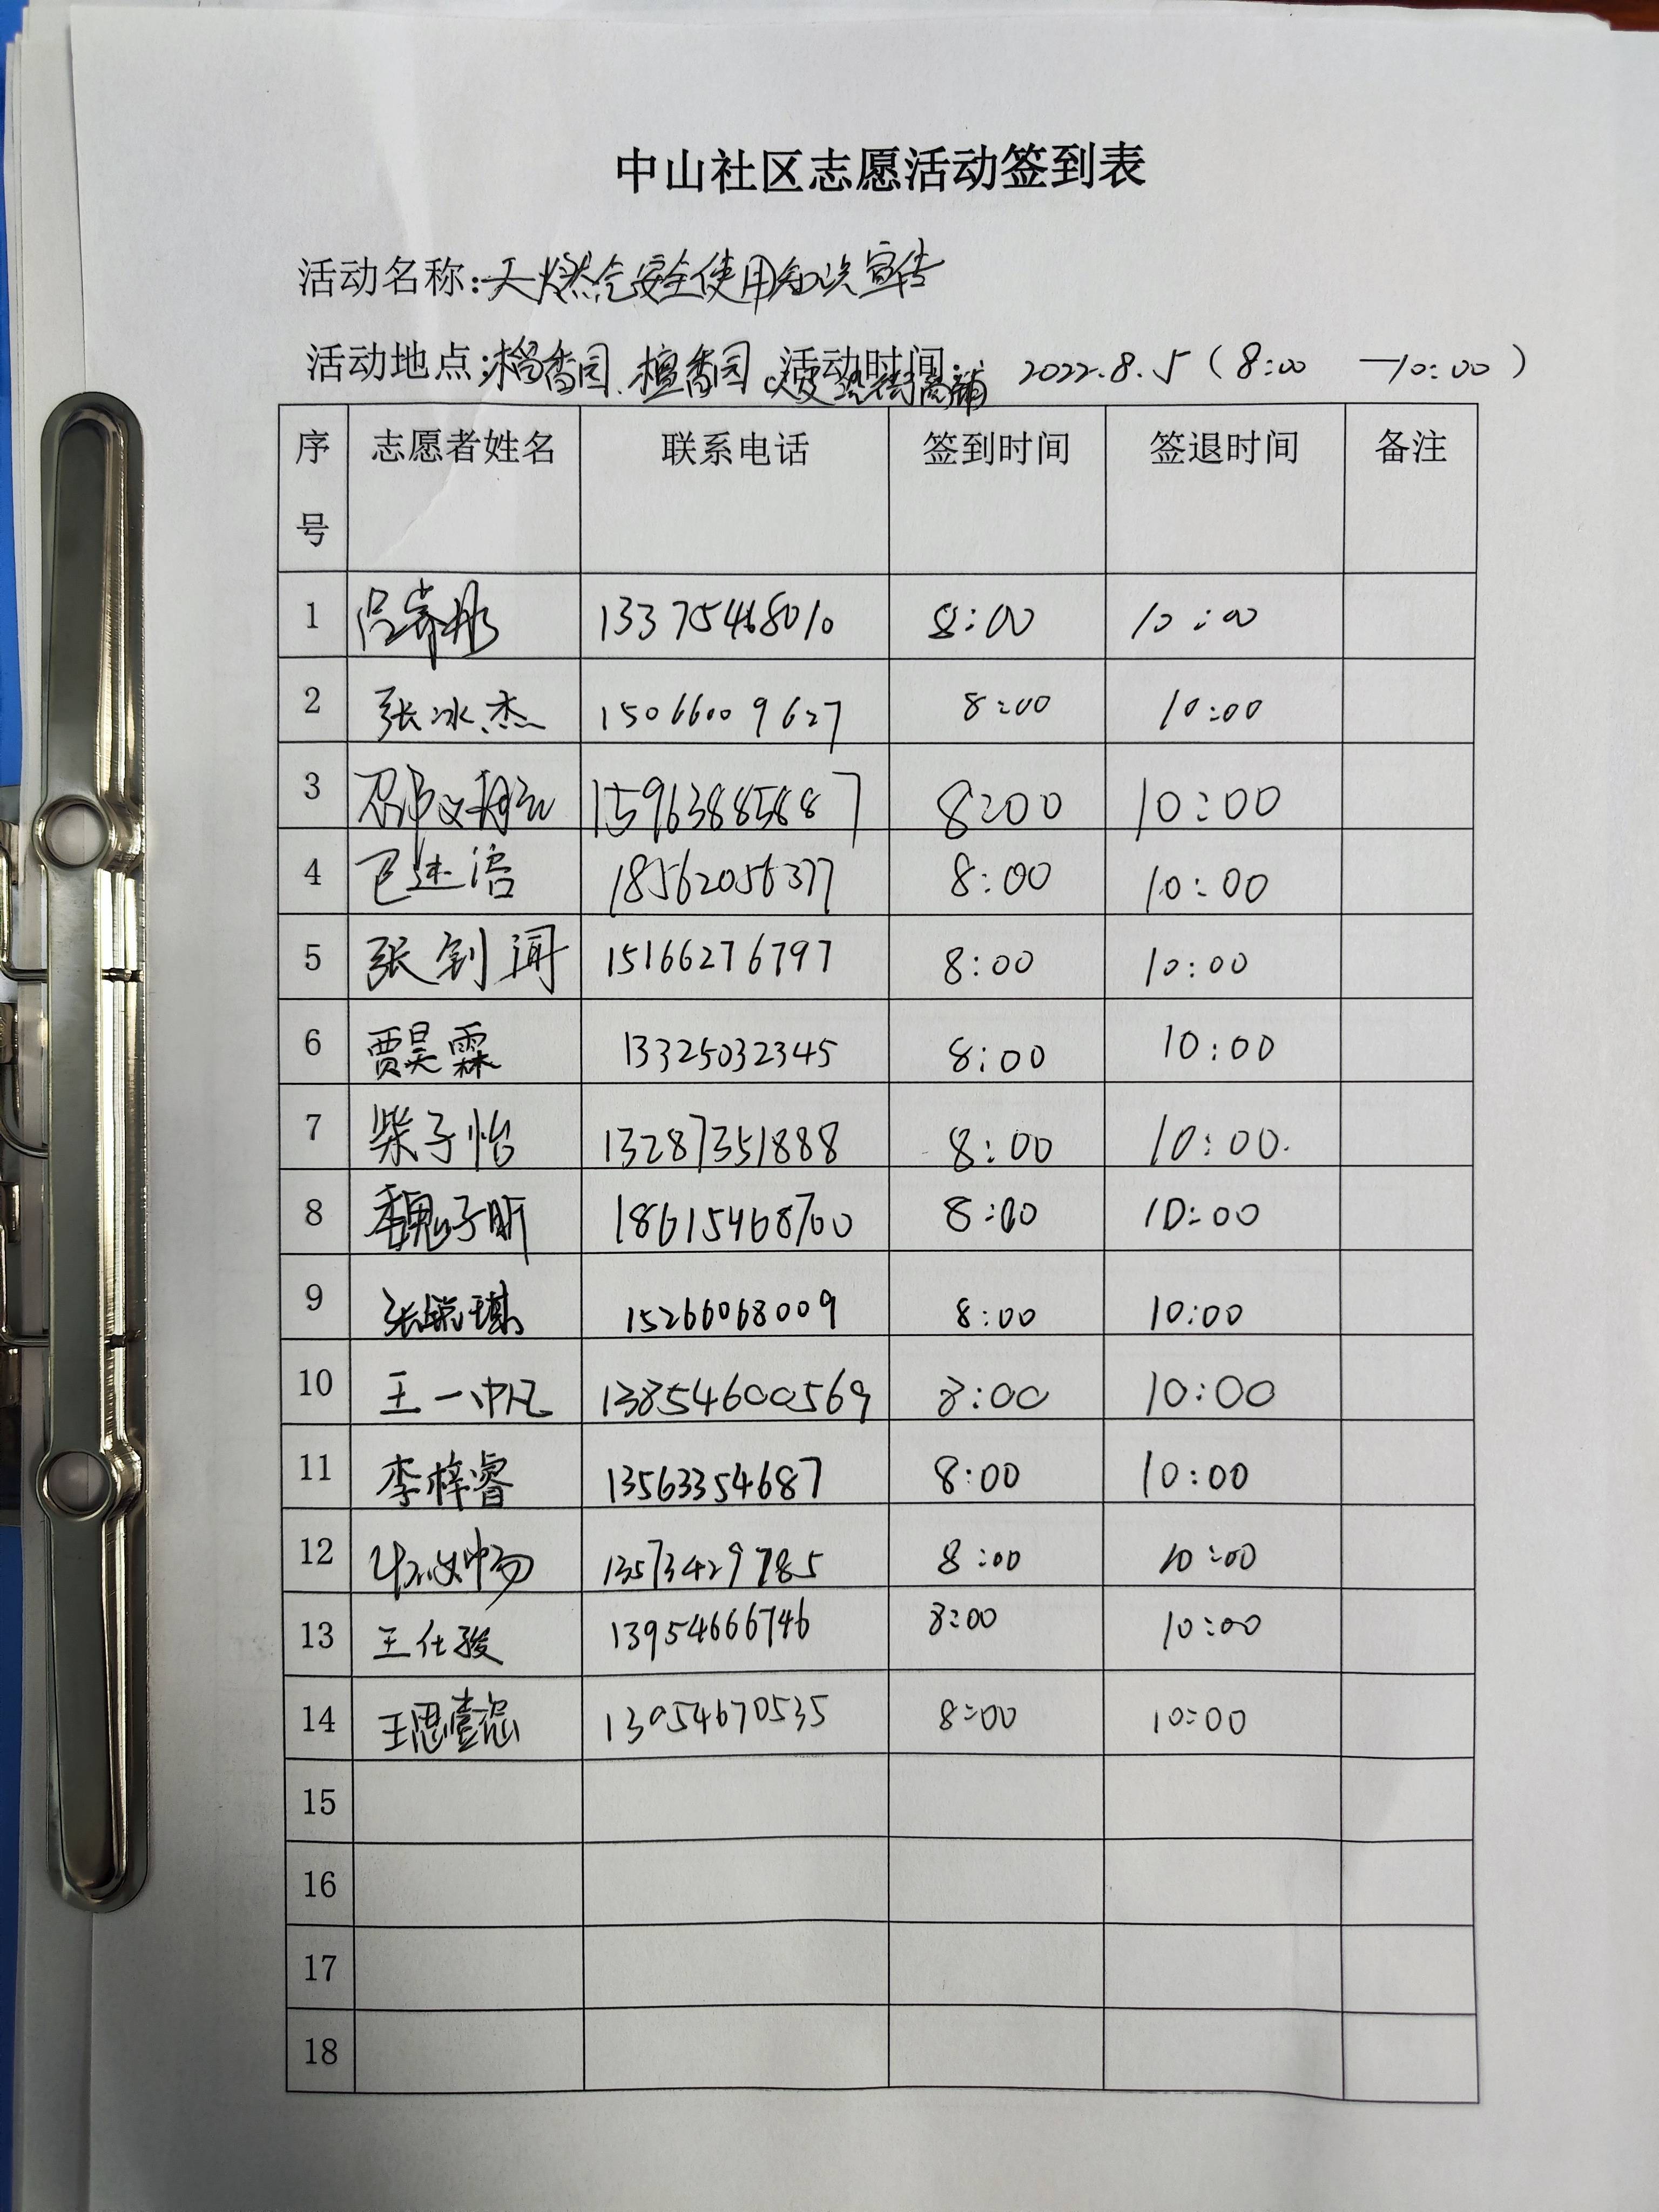 中山社区志愿活动签到表
活动名称:天燃气安全使用知识宣传
活动地点: 檀香园 活动时间: 2022.8.5（8:00 —10:00）
序号 志愿者姓名 联系电话 签到时间 签退时间 备注
1 13375468010 8:00 10:00
2 张冰杰 15066009627 8:00 10:00
3 15963885887 8:00 10:00
4 18562056377 8:00 10:00
5 张钊闻 15166276797 8:00 10:00
6 贾昊霖 13325032345 8:00 10:00
7 柴子怡 13287351888 8:00 10:00.
8 魏子昕 18615468700 8:00 10:00
9 15266068009 8:00 10:00
10 王一帆 13854600569 8:00 10:00
11 李梓睿 13563354687 8:00 10:00
12 13573429785 8:00 10:00
13 王仕骏 13954666746 8:00 10:00
14 13954670535 8:00 10:00
15
16
17
18